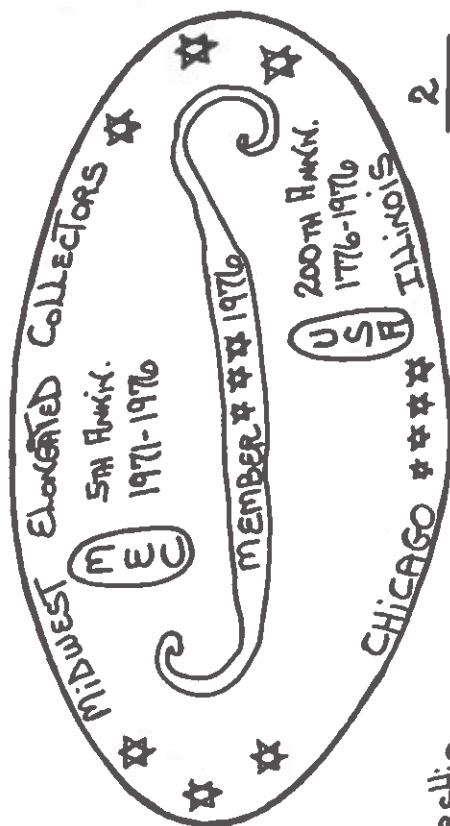 MIDWEST ELONGATED COLLECTORS
MEC
5TH ANNIV.
1971-1976
MEMBER 1976
200TH ANNIV.
1776-1976
USA
CHICAGO ILLINOIS
2